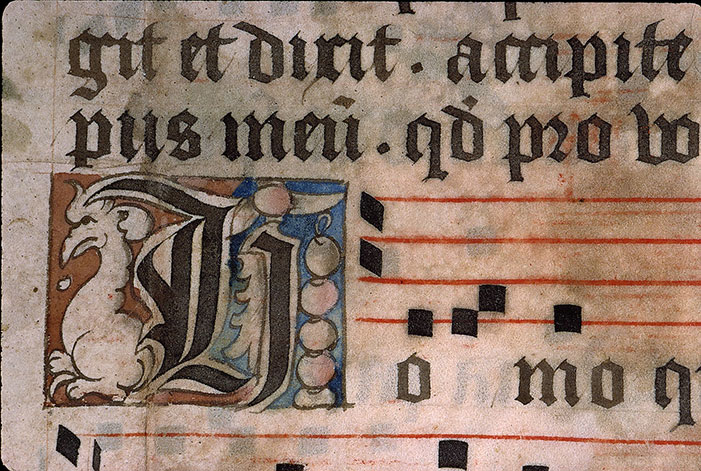 git et dixit . accipite
pus meū . qđ pro vo
H o mo q